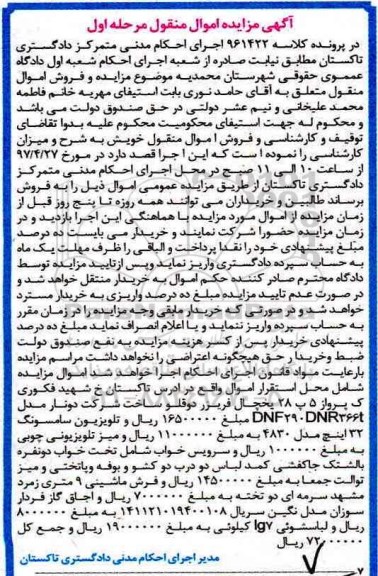 آگهی مزایده اموال منقول مرحله اول
در پرونده کلاسه ۹۶۱۴۲۲ اجرای احکام مدنی متمرکز دادگستری
تاکستان مطابق نیابت صادره از شعبه اجرای احکام شعبه اول دادگاه
عمموی حقوقی شهرستان محمدیه موضوع مزایده و فروش اموال
منقول متعلق به آقای حامد نوری بابت استیفای مهریه خانم فاطمه
محمد علیخانی و نیم عشر دولتی در حق صندوق دولت می باشد
و محکوم له جهت استیفای محکومیت محکوم علیه بدوا تقاضای
توقیف و کارشناسی و فروش اموال منقول خویش به شرح و میزان
کارشناسی را نموده است که این اجرا قصد دارد در مورخ ۹۷/۴/۲۷
از ساعت ۱۰ الی ۱۱ صبح در محل اجرای احکام مدنی متمرکز
دادگستری تاکستان از طریق مزایده عمومی اموال ذیل را به فروش
برساند طالبین و خریداران می توانند همه روزه تا پنج روز قبل از
زمان مزایده از اموال مورد مزایده با هماهنگی این اجرا بازدید و در
زمان مزایده حضورا شرکت نمایند و خریدار می بایست ده درصد
مبلغ پیشنهادی خود را نقدا پرداخت و الباقی را ظرف مهلت یک ماه
به حساب سپرده دادگستری واریز نماید و پس از تایید مزایده توسط
دادگاه محترم صادر کننده حکم اموال به خریدار منتقل خواهد شد و
در صورت عدم تایید مزایده مبلغ ده درصد واریزی به خریدار مسترد
خواهد شد و در صورتی که خریدار مابقی وجه مزایده را در زمان مقرر
به حساب سپرده واریز ننماید و یا اعلام انصراف نماید مبلغ ده درصد
پیشنهادی خریدار پس از کسر هزینه مزایده به نفع صندوق دولت
ضبط و خریدار حق هیچگونه اعتراضی را نخواهد داشت مراسم مزایده
با رعایت مواد قانون اجرای احکام اجرا خواهد شد اموال مزایده
شامل محل استقرار اموال واقع در ادرس تاکستان خ شهید فکوری
ک پرواز ۵ پ ۲۸ یخچال فریزر دوقلو ساخت شرکت دونار مدل
DNF۲۹۰DNR۳۶۶t مبلغ ۱۶۵۰۰۰۰۰ ریال و تلویزیون سامسونگ
۳۲ اینچ مدل ۴۸۳۰ به مبلغ ۱۱۰۰۰۰۰۰ ریال و میز تلویزیونی چوبی
به مبلغ ۱۰۰۰۰۰۰ ریال و سرویس خواب شامل تخت خواب دونفره
بالشتک جاکفشی کمد لباس دو درب دو کشو و بوفه و پاتختی و میز
توالت جمعا به مبلغ ۱۴۵۰۰۰۰۰ ریال و فرش ماشینی ۹ متری زمرد
مشهد سرمه ای دو تخته به مبلغ ۷۰۰۰۰۰۰ ریال و اجاق گاز فردار
سوزان مدل نگین سریال ۱۴۱۱۲۱۰۱۹۴۰۰۱۰۸ به مبلغ ۸۰۰۰۰۰۰
ریال و لباسشوئی lg۷ کیلوئی به مبلغ ۱۹۰۰۰۰۰۰ ریال و جمع کل
ریال
مدیر اجرای احکام مدنی دادگستری تاکستان